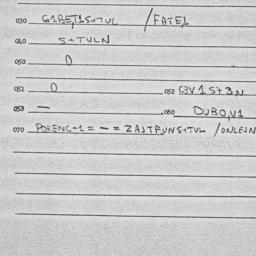 030 G1BET1S+TUL /FATE1
040 S+TULN
050 0
051 0 052 C3V1S+3N
053 — .060 DUBO,V1
070 PORENC+1=-= ZASTFUNS+TUL /ONLEJN